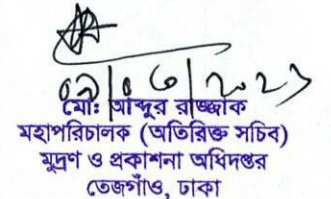 ০৯/০৩/২০২১
মো: আব্দুর রাজ্জাক
মহাপরিচালক (অতিরিক্ত সচিব)
মুদ্রণ ও প্রকাশনা অধিদপ্তর
তেজগাঁও, ঢাকা